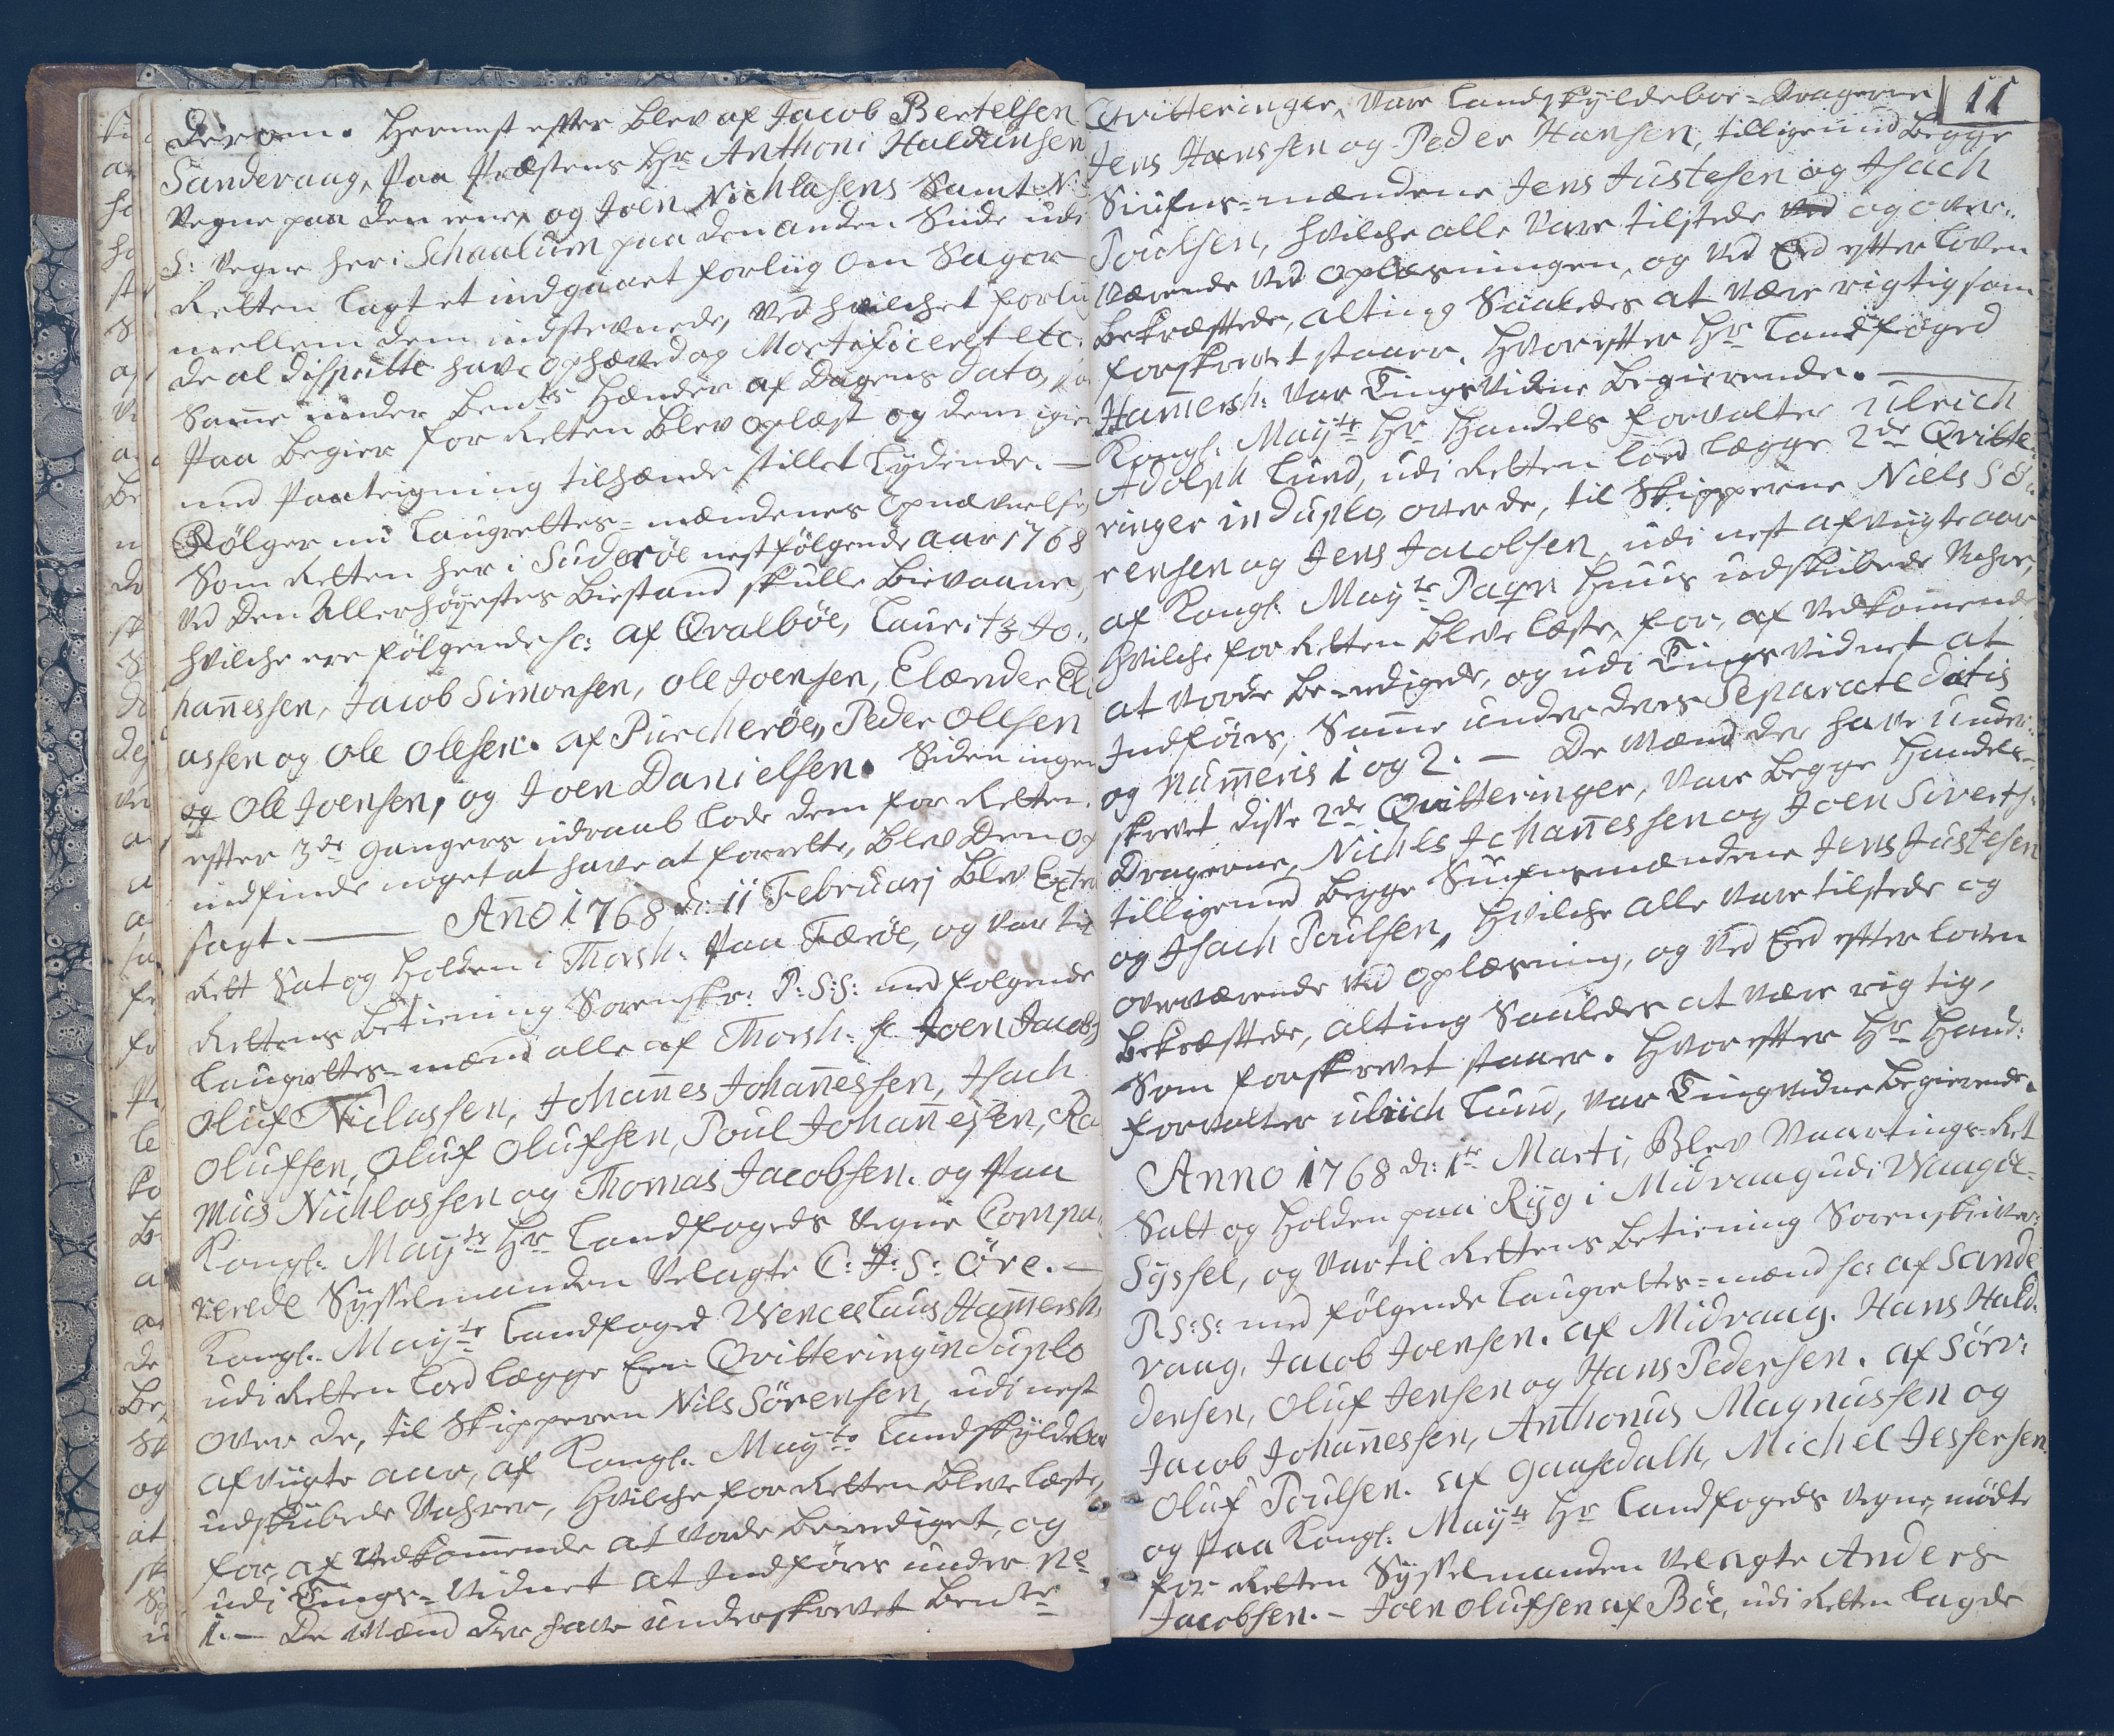 derom. Hernest efter blev af Jacob Bertelsen
Sandevaag, paa Præstens Hr Anthoni Haldansen
Vegne paa den eene, og Joen Nichlasens Samt N:
S: Vegne her i Schaalum paa den anden Side udi
Retten lagt et indgaaet forliig om Sagen
mellem dem indstevnede, ved hvilchet forlig
de al disputte have ophæved og Mortificeret etc:
Same under bemts Hænder af Dagens dato,
Paa begier for Retten blev oplæst og dem igien
med Paateigning tilhænde stillet lydende. —
Følger nu Laugrettes-mændenes Opnævnelse,
Som Retten her i Suderøe nestfølgende aar 1768
Ved Den Allerhøyestes Biestand skulle Bievaane,
hvilche ere følgende sc: af Qvalbøe, Lauritz Jo-
hañessen, Jacob Simonsen, Ole Joensen, Elænder Eli
assen og Ole Olesen. af Purcherøe, Peder Ollsen
og Ole Joensen, og Joen Danielsen. Siden ingen
efter 3de ganges udraab lode dem for Retten
indfinde noget at have at forrette, blev Den op
sagt. — Año 1768 d: 11 Februarj blev Extra
Rett Sat og holden i Thorsh: paa Færøe, og var til
Rettens betiening Sorenskr: P: S: S: med følgende
Laugrettes-mænd alle af Thorsh: sc Joen Jacobs
Oluf Niclassen, Johañes Johañessen, Isach
Olufsen, Oluf Olufsen, Poul Johañesen, Ra
mus Nichlassen og Thomas Jacobsen. og paa
Kongl: Mayts Hr Landfogeds Vegne Compa-
rerede Sysselmanden Velagte C: J: S: Øre. —
Kongl: Mayts Landfoged Wenceslaus Hamersh:
udi Retten lod lægge Een Qvittering in duplo
over de, til Skipperen Nils Sörensen, udi nest
afvigte aar, af Kongl: Mayts Landskyldeboe
udskibede Vahrer, hvilche for Retten bleve læste,
for, af Vedkommende at vorde beeediget, og
udi Tings-Vidnet at Indføres under No
1. — De Mænd der have underskrevet bemte
11
Qvitteringer, vare Landskyldeboe-Dragerne
Jens Hanssen og Peder Hansen, tilligemed begge
Siufns-mændene Jens Justesen og Isach
Poulsen, hvilche alle vare tilstede ved og over-
værende ved oplæsningen, og ved Eed efter loven
bekræftede, alting Saaledes at være rigtig som
forskrevet staaer. Hvorefter Hr Landfoged
Hamersh: var Tingsvidne begierende. —
Kongl: Mayts Hr Handels forvalter Ulrich
Adolph Lund, udi Retten lod lægge 2de Qvitte-
ringer in duplo, over de, til Skipperne Niels Sö-
rensen og Jens Jacobsen, udi nest afvigte aar
af Kongl: Mayts Pagen Huus udskibede Vahre,
hvilche for Retten bleve læste, for, af Vedkomende
at vorde beeedigede, og udi Tings vidnet at
Indføres, Same under deres Separate datis
og Nummeris 1 og 2. — De Mænd der have under-
skrevet disse 2de Qvitteringer, vare begge Handels-
Dragerne, Nichls Johañessen og Joen Siverts:
tilligemed begge Siufnsmændene Jens Justesen
og Isach Poulsen, hvilche alle vare tilstede og
overværende ved oplæsning, og ved Eed efter loven
bekræftede, alting Saaledes at være rigtig,
Som forskrevet staaer. Hvorefter Hr Hand:
forvalter Ulrich Lund, var Tingvidne begierende.
Anno 1768 d: 1te Marti, Blev Vaartings-Ret
Satt og holden paa Ryg i Midvaag udi Waagøe-
Syssel, og var til Rettens betiening Sorenskriver
P: S: S: med følgende Laugrettes-mænd sc: af Sande
vaag, Jacob Joensen. af Midvaag. Hans Hald-
densen, Oluf Jensen og Hans Pedersen. af Sörv:
Jacob Johañessen, Anthonius Magnussen og
Oluf Poulsen. af Gaasedalh, Michel Jessersen
og paa Kongl: Mayts Hr Landfogeds Vegne, mødte
for Retten Sysselmanden Velagte Anders
Jacobsen. — Joen Olufsen af Böe, udi Retten lagde